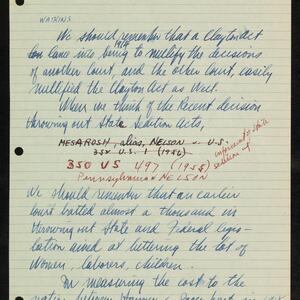 WATKINS
We should remember that a Clayton Act
1914
can came into being to nullify the decisions
of another Court, and the other Court, easily
nullified the Clayton Act as West.
When we think of the Recent decision
throwing out State Sedition Acts,
MESAROSH, alias, NELSON - U.S.
352 U.S. 1 (1956)
350 US 497 (1955)
Pennsylvania v NELSON
We should remember that an earlier
Court batted almost a thousand in
throwing out State and Federal legis-
lation aimed at bettering the lot of
Women, laborers, children.
In measuring the cost to the